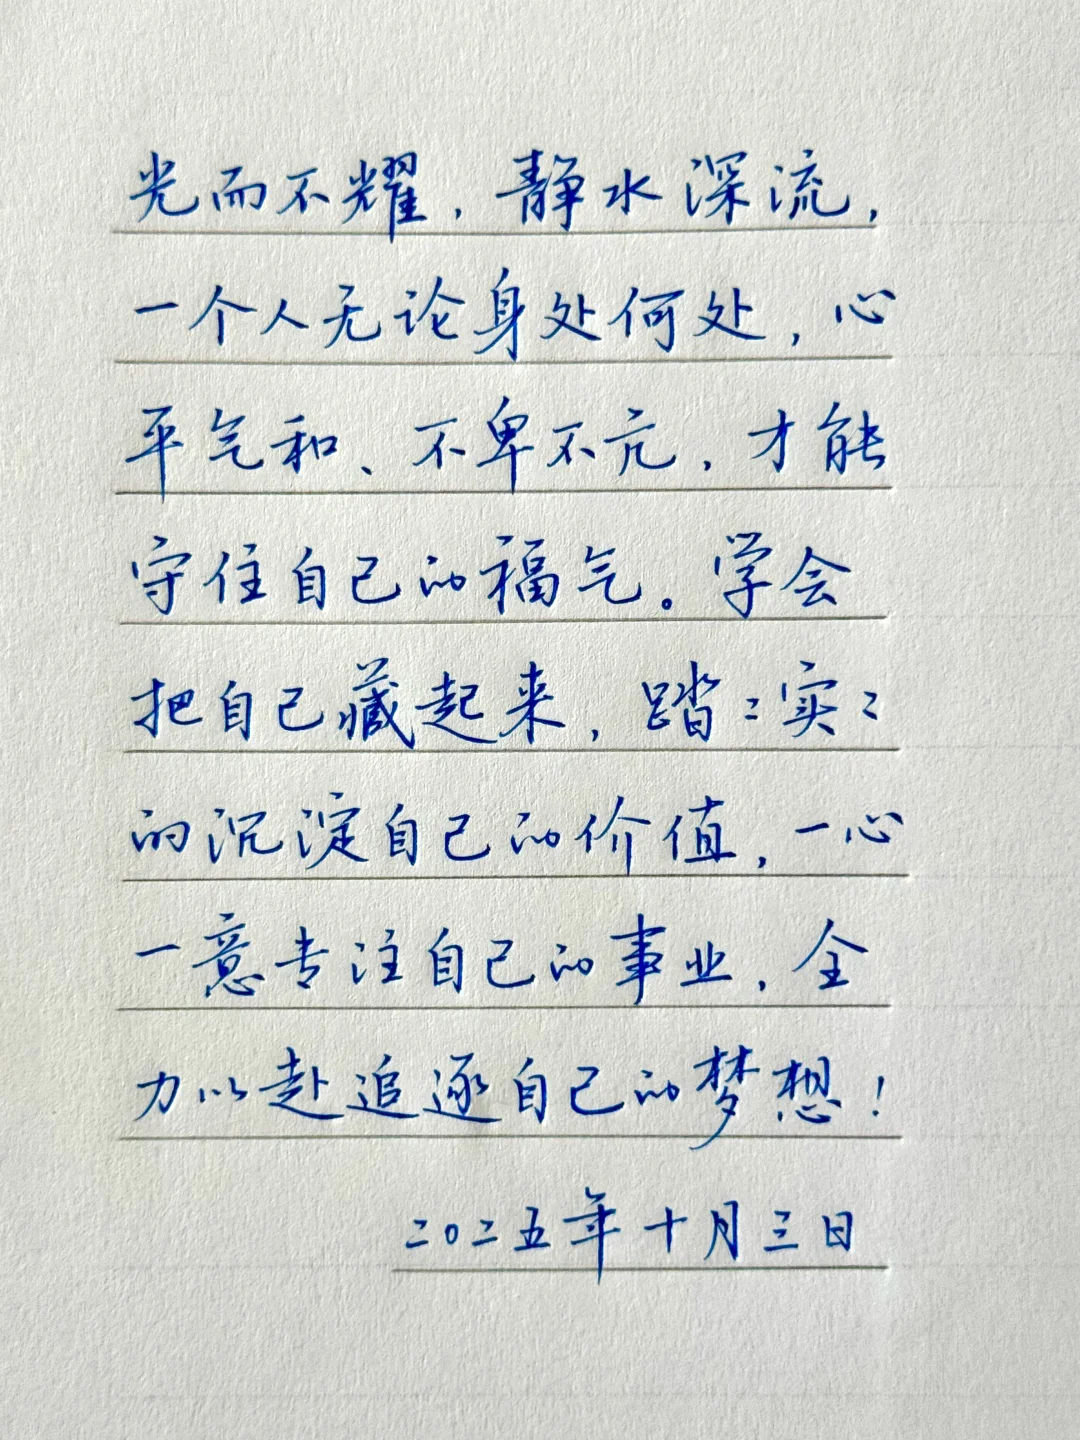 光而不耀，静水深流，
一个人无论身处何处，心
平气和、不卑不亢，才能
守住自己的福气。学会
把自己藏起来，踏〻实〻
的沉淀自己的价值，一心
一意专注自己的事业，全
力以赴追逐自己的梦想！
二〇二五年十月三日